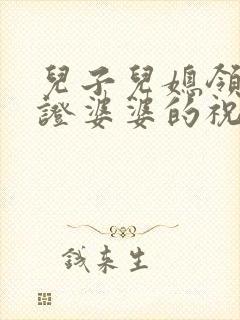 兒子兒媳領
證婆婆的祝
錢來生